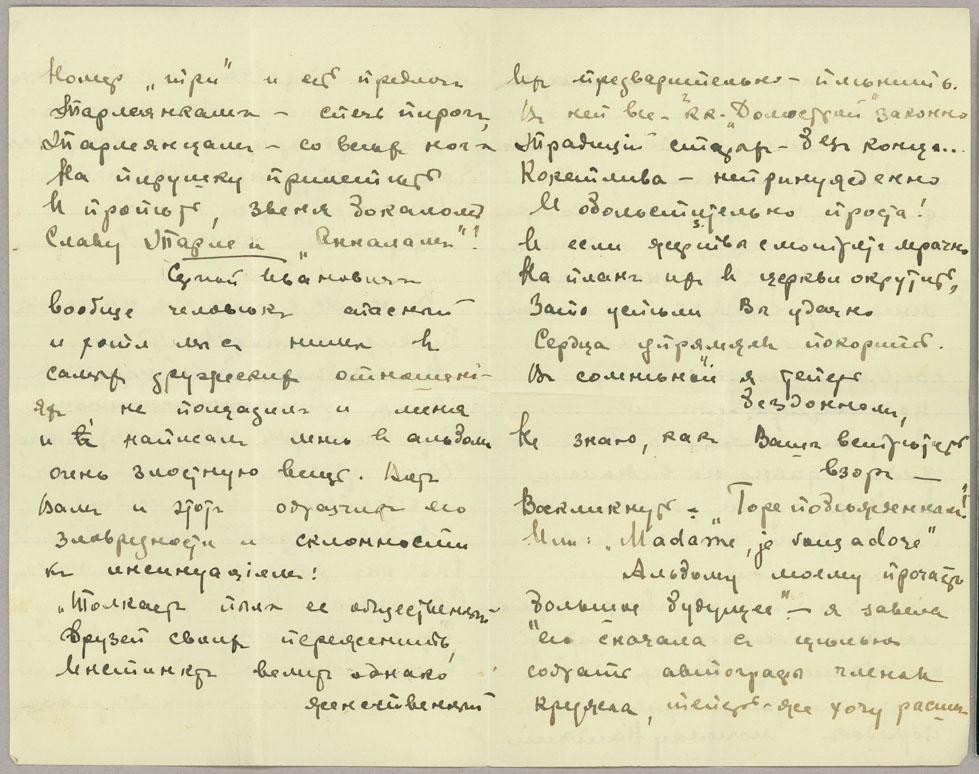 Номер „три“ и ей предлог
Тарлеянкамъ – степь широка,
Тарлеянцамъ – со всѣхъ ногъ
На пирушку прилетѣть
И пропѣть, звеня бокаломъ
Славу Тарле и „Анналамъ“!
Сергѣй Ивановичъ
вообще человѣкъ опасный
и хотя мы съ нимъ въ
самыхъ дружескихъ отношені-
яхъ не пощадилъ и меня
и написалъ мнѣ въ альбомъ
очень злостную вещь. Вотъ
Вамъ и этотъ образчикъ его
зловредности и склонности
къ инсинуаціямъ!
„Толкаетъ пылъ ее общественный
Друзей своихъ переженить,
Инстинктъ велитъ однако
женственный
Ихъ предварительно – плѣнить.
Въ ней все – „кк. Домострой“ законно
Традицій старыхъ – безъ конца...
Кокетлива – непринужденно
И обольстительно проста!
И если жертвы смотрятъ мрачно
На планъ ихъ въ церкви окрутить,
Зато успѣли Вы удачно
Сердца упрямцевъ покорить.
Въ сомнѣньи я теперь
бездонномъ,
Не знаю, какъ Вашъ встрѣтить
взоръ —
Воскликнуть – „Горе побѣжденнымъ!“
Или: „Madame, je vous adore“
Альбому моему прочатъ
„большое будущее“ – я завела
его сначала съ цѣлью
собрать автографы членовъ
кружка, теперь-же хочу расши-